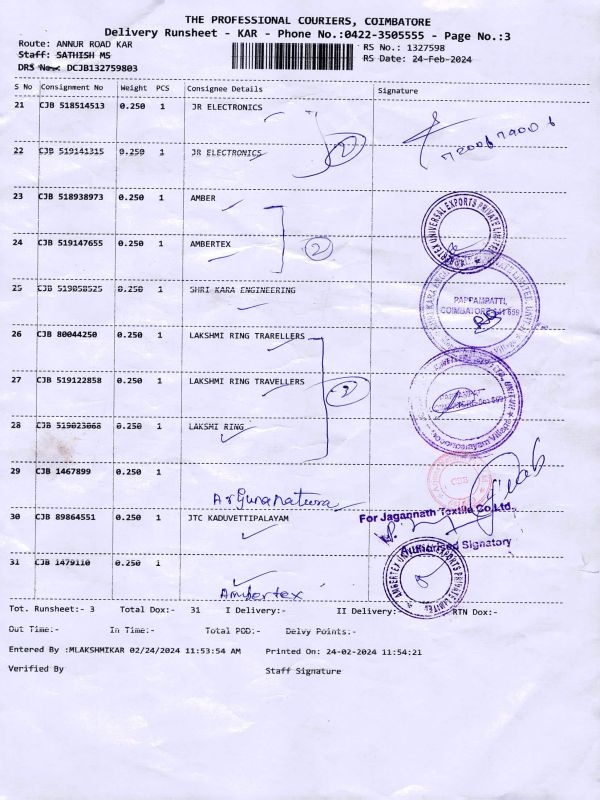 THE PROFESSIONAL COURIERS, COIMBATORE
Delivery Runsheet - KAR - Phone No.:0422-3505555 - Page No.:3
Route: ANNUR ROAD KAR RS No.: 1327598
Staff: SATHISH MS RS Date: 24-Feb-2024
DRS No.: DCJB132759803
S No Consignment No Weight PCS Consignee Details Signature
21 CJB 518514513 0.250 1 JR ELECTRONICS
2
22 CJB 519141315 0.250 1 JR ELECTRONICS
23 CJB 518938973 0.250 1 AMBER
AMBERTEX UNIVERSAL EXPORTS PRIVATE LIMITED
24 CJB 519147655 0.250 1 AMBERTEX 2
25 CJB 519058525 0.250 1 SHRI KARA ENGINEERING
PAPPAMPATTI,
COIMBATORE-641 659
26 CJB 80044250 0.250 1 LAKSHMI RING TRARELLERS
27 CJB 519122858 0.250 1 LAKSHMI RING TRAVELLERS 2
28 CJB 519023068 0.250 1 LAKSHMI RING
29 CJB 1467899 0.250 1
30 CJB 89864551 0.250 1 JTC KADUVETTIPALAYAM
For Jagannath Textile Co.Ltd.,
Authorised Signatory
31 CJB 1479110 0.250 1
Ambertex
AMBERTEX UNIVERSAL EXPORTS PRIVATE LIMITED
Tot. Runsheet:- 3 Total Dox:- 31 I Delivery:- II Delivery:- RTN Dox:-
Out Time:- In Time:- Total POD:- Delvy Points:-
Entered By :MLAKSHMIKAR 02/24/2024 11:53:54 AM Printed On: 24-02-2024 11:54:21
Verified By Staff Signature